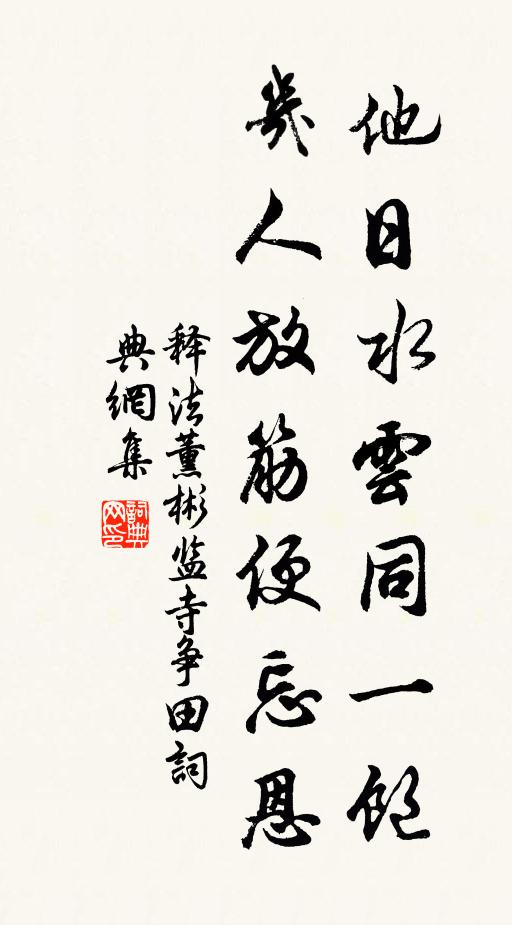 他日水雲同一飽
幾人放筋便忘恩
释法薰彬监寺争田詞
典網集
詞典网印